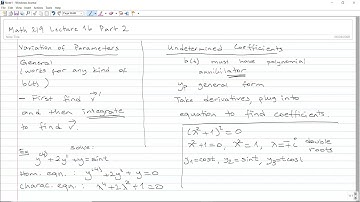 Math 219 Lecture 16 Part 2
Variation of Parameters
General
(works for any kind of
b(t))
- First find v⃗'
and then integrate
to find v⃗.
Ex: solve:
y⁽⁴⁾+2y''+y=sint
Hom. eqn.: y⁽⁴⁾+2y''+y=0
Charac. eqn.: λ⁴+2λ²+1=0
Undetermined Coefficients
b(t) must have polynomial
annihilator
yp general form
Take derivatives, plug into
equation to find coefficients.
(λ²+1)²=0
λ²+1=0, λ²=-1, λ=∓i double
roots
y₁=cost, y₂=sint, y₃=tcost